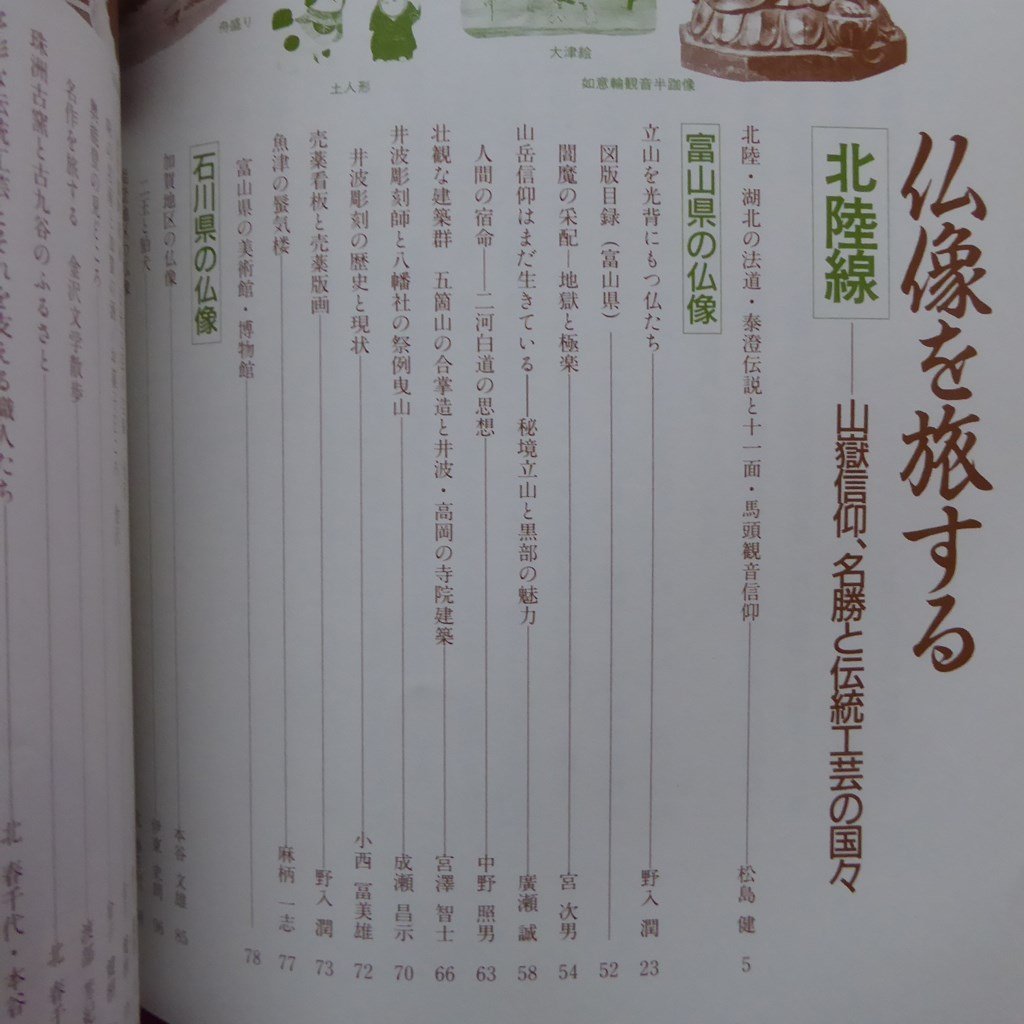 仏像を旅する
北陸線──山嶽信仰、名勝と伝統工芸の国々
如意輪観音半跏像
大津絵
土人形
舟盛り
北陸・湖北の法道・泰澄伝説と十一面・馬頭観音信仰 松島 健 5
富山県の仏像
立山を光背にもつ仏たち 野入 潤 23
図版目録(富山県) 52
閻魔の采配─地獄と極楽 宮 次男 54
山岳信仰はまだ生きている──秘境立山と黒部の魅力 廣瀬 誠 58
人間の宿命──二河白道の思想 中野 照男 63
壮観な建築群 五箇山の合掌造と井波・高岡の寺院建築 宮澤 智士 66
井波彫刻師と八幡社の祭例曳山 成瀬 昌示 70
井波彫刻の歴史と現状 小西 冨美雄 72
売薬看板と売薬版画 野入 潤 73
魚津の蜃気楼 麻柄 一志 77
富山県の美術館・博物館 78
石川県の仏像
加賀地区の仏像 本谷 文雄 85
仁王と狛犬 伊東 史朗 96
名作を旅する 金沢文学散歩
珠洲古窯と古九谷のふるさと